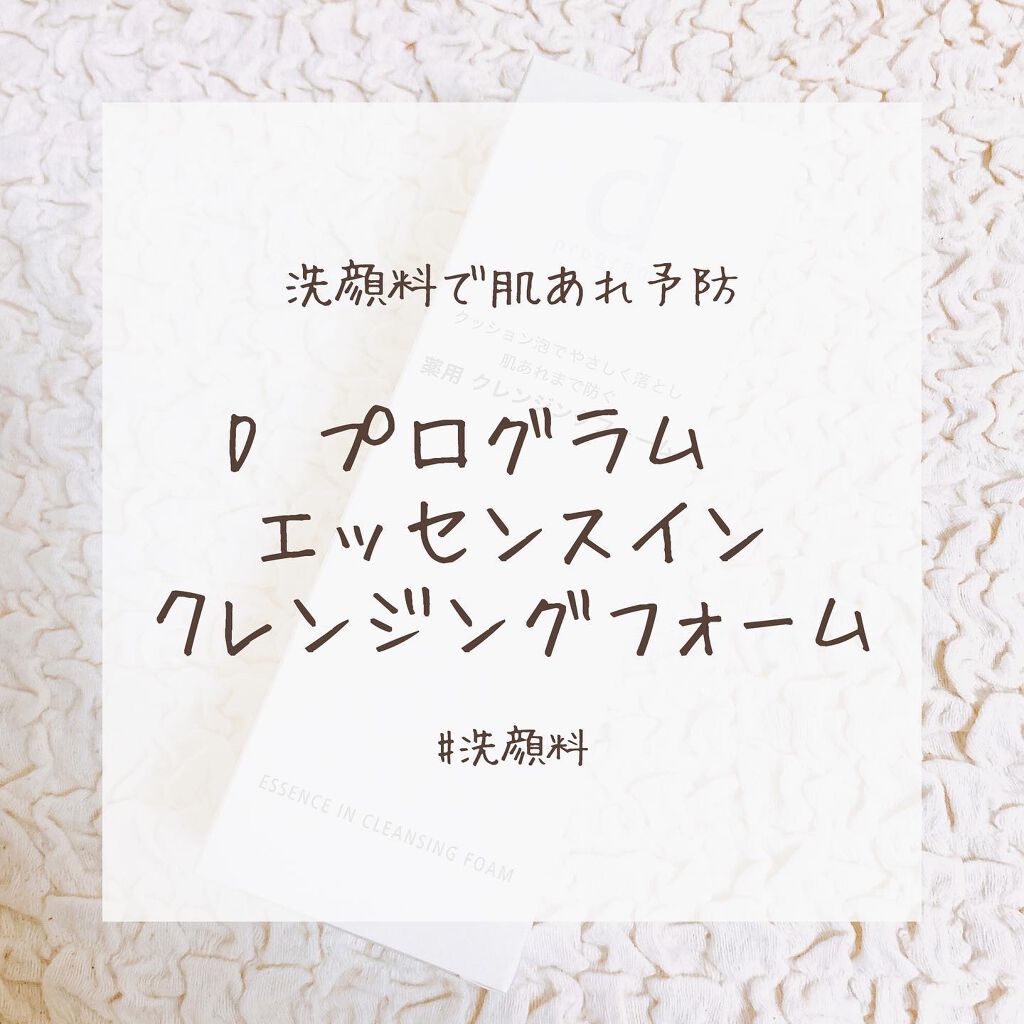 洗顔料で肌あれ予防
D プログラム
エッセンスイン
クレンジングフォーム
#洗顔料
d
program
クッション泡でやさしく落とし
肌あれまで防ぐ
薬用 クレンジングフォーム
ESSENCE IN CLEANSING FOAM